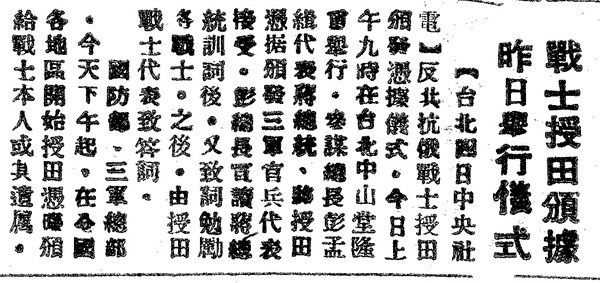 戰士授田頒據
昨日舉行儀式
【台北四日中央社
電】反共抗俄戰士授田
頒發憑據儀式，今日上
午九時在台北中山堂隆
重舉行。參謀總長彭孟
緝代表蔣總統，將授田
憑據頒發三軍官兵代表
接受。彭總長宣讀蔣總
統訓詞後，又致詞勉勵
各戰士。之後，由授田
戰士代表致答詞。
國防部、三軍總部
，今天下午起，在全國
各地區開始授田憑據頒
給戰士本人或其遺屬。